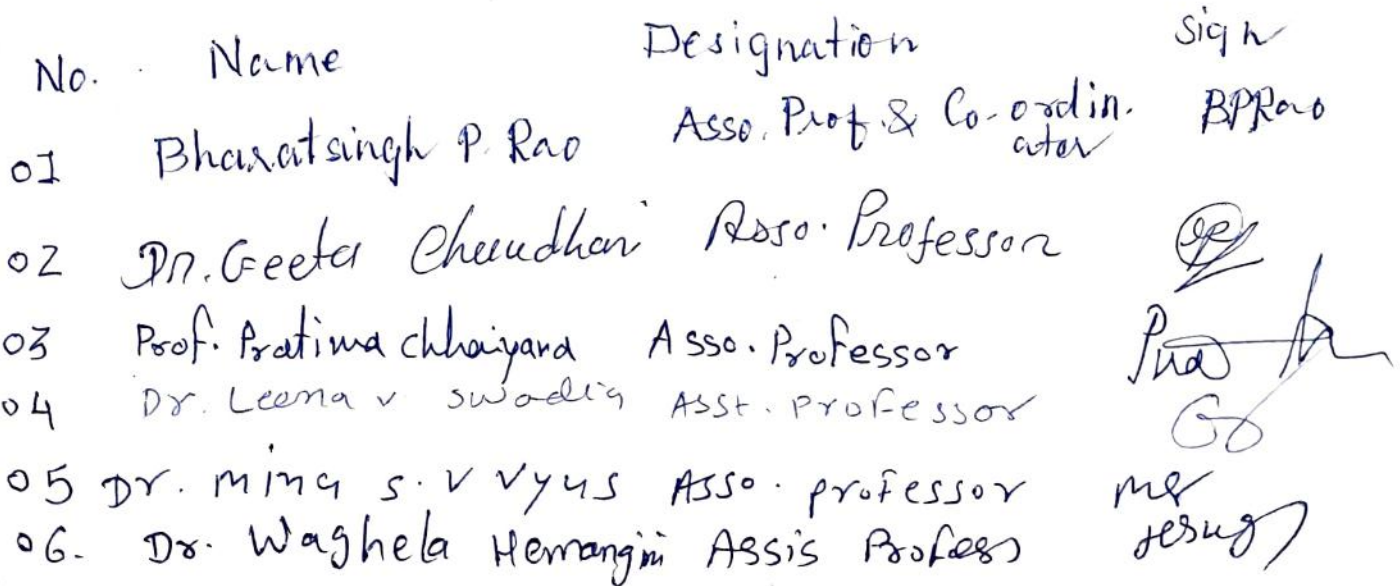 No. Name Designation Sign
01 Bharatsingh P. Rao Asso. Prof. & Co-ordin.ator BPRao
02 Dr. Geeta Chaudhari Asso. Professor
03 Prof. Pratima chhaiyara Asso. Professor
04 Dr. Leena v swadia Asst. professor
05 Dr. mina s. v vyas Asso. professor
06. Dr. Waghela Hemangini Assis Profess